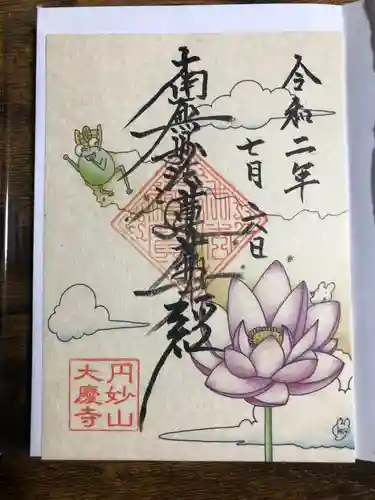 令和二年
七月六日
南無妙法蓮華経
円妙山
大慶寺